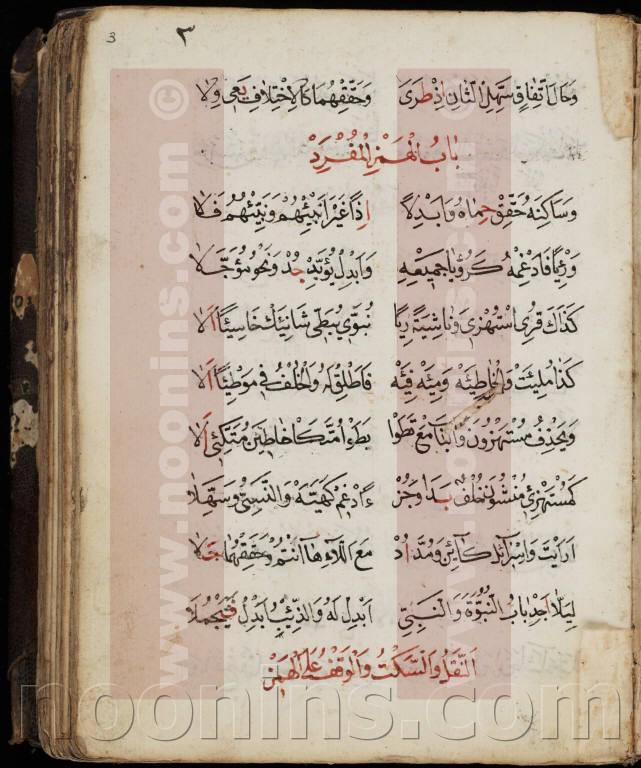 3 ٣
وَحَالَ اتِّفَاقٍ سَهِّلِ الثَّانِ إِذْ طَرَى وَحَقِّقْهُمَا كَالِاخْتِلَافِ يَعِي وِلَا
بَابُ الْهَمْزِ الْمُفْرَدْ
وَسَاكِنَهُ حَقِّقْ حِمَاهُ وَأَبْدِلًا إِذًا غَيْرَ أَنْبِئْهُمْ وَنَبِّئْهُمُ فَلَا
وَرِئْيًا فَادْغِمْهُ كَرُؤْيَا جَمِيعِهِ وَأَبْدِلْ يُؤَيِّدْ جُدْ وَنَحْوَ مُؤَجَّلَا
كَذَاكَ قُرِي اسْتُهْزِي وَنَاشِيَةً رِيَا نُبَوِّي يُبَطِّي شَانِيَكْ خَاسِيًا أَلَا
كَذَا مُلِيَتْ وَالْخَاطِيَهْ وَمِيَهْ فِيَهْ فَأَطْلِقْ لَهُ وَالْخُلْفُ فِي مَوْطِيًا أَلَا
وَيَحْذِفُ مُسْتَهْزُونَ وَالْبَابَ مَعْ تَطَوْا يَطَوْا مُتَّكًا خَاطِينَ مُتَّكِئِي أَلَا
كَمُسْتَهْزِئِي مُنْشُونَ خُلْفٌ بَدَا وَجُزْ ءًا ادْغِمْ كَهَيْئَهْ وَالنَّسِيُّ وَسَهَّلَا
أَرَأَيْتَ وَإِسْرَائِيلَ كَائِنْ وَمَدَّ أُدْ مَعَ اللَّاءِ هَا أَنْتُمْ وَحَقِّقْهُمَا حَلَا
لِيَلَّا أَجِدْ بَابَ النُّبُوَّةِ وَالنَّبِيِّ أَبْدِلْ لَهُ وَالذِّئْبُ أَبْدِلْ فَيَجْمُلَا
النَّقْلُ وَالسَّكْتُ وَالْوَقْفُ عَلَى الْهَمْزْ
www.noonins.com ©
www.noonins.com ©
noonins.com